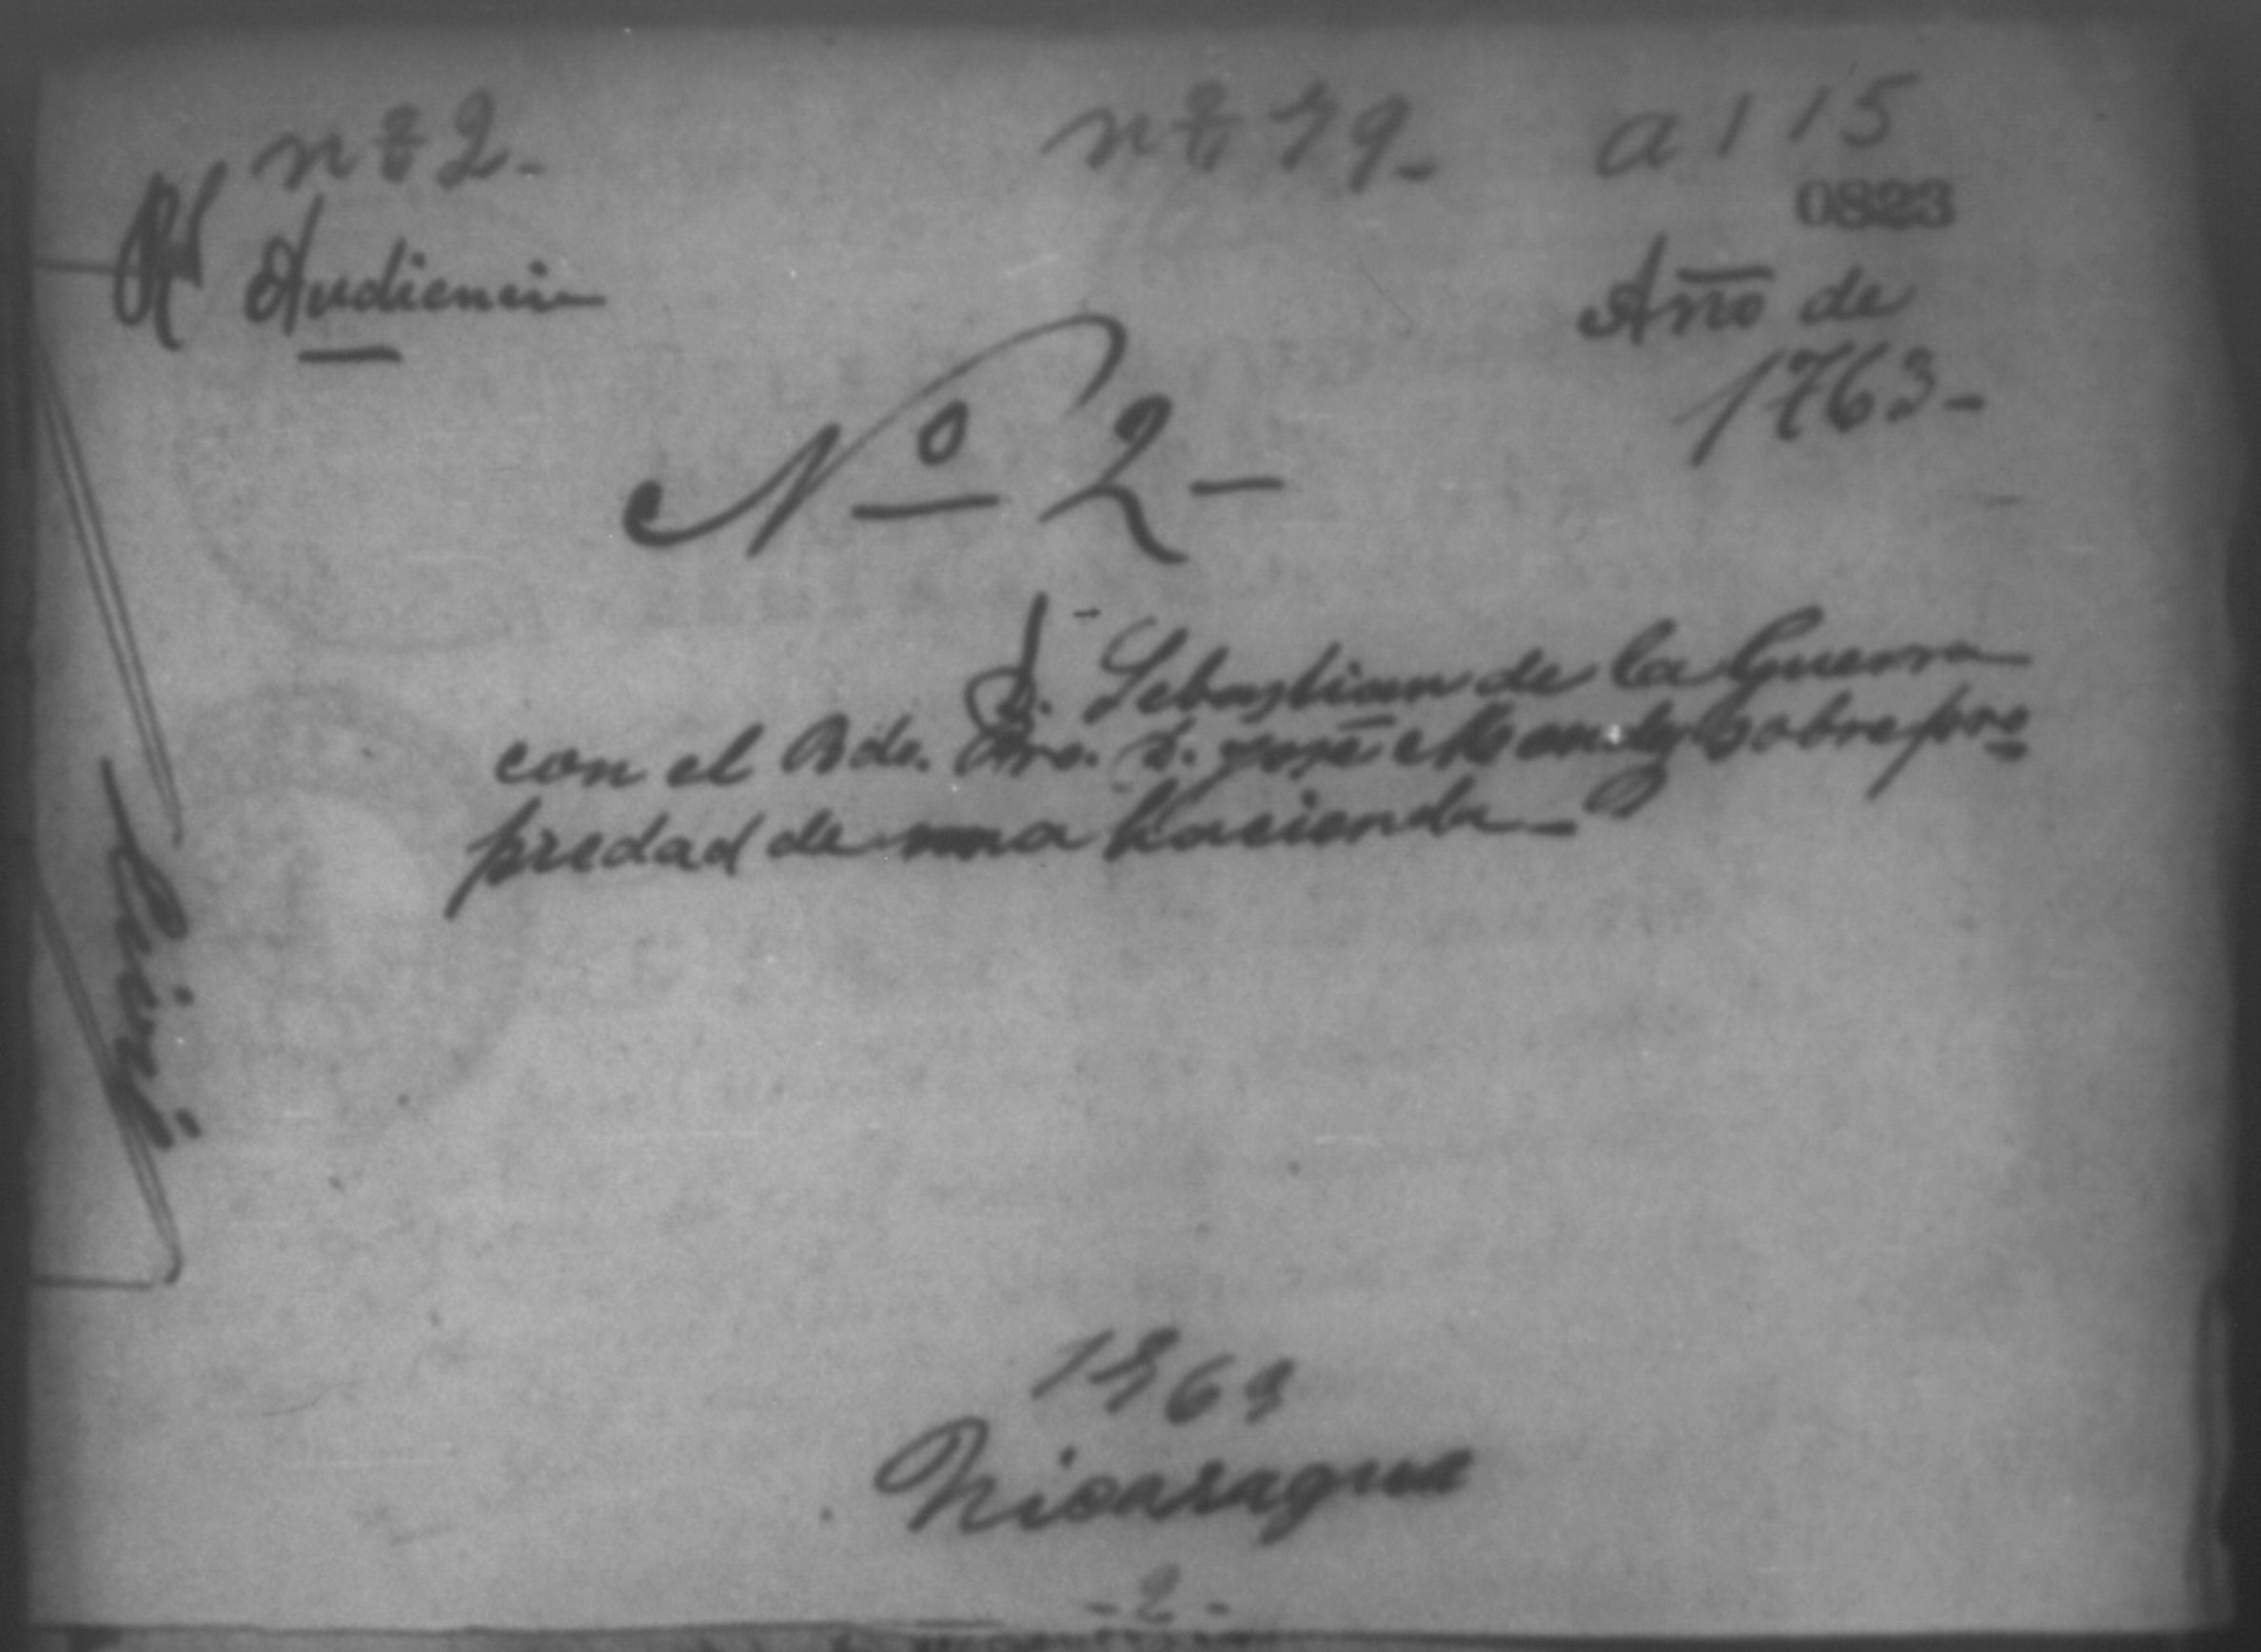 nº 2- nº 79- a 115
0823
Rl Audiencia
Año de
1763-
Nº 2-
D. Sebastian de la Guerra
con el Bdo. Pro. D. José sobre pro
piedad de una hacienda-
1763
Nicaragua
-2-